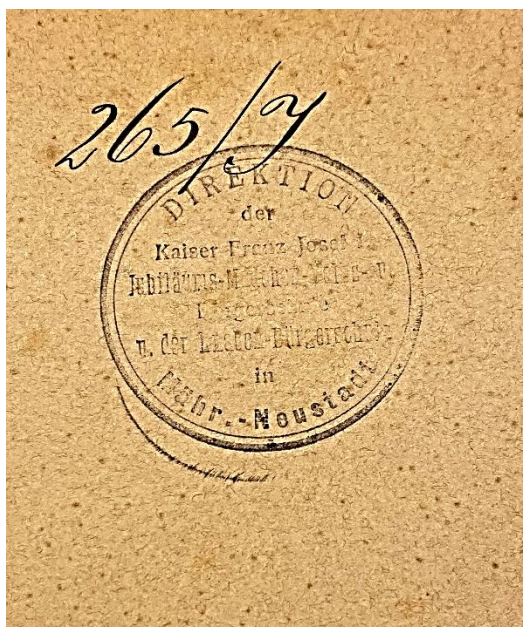 265/J
DIREKTION
der
Kaiser Franz Josef I.
Jubiläums-Mädchen-Volks- u.
Bürgerschule
u. der Knaben-Bürgerschule
in
Mähr.-Neustadt